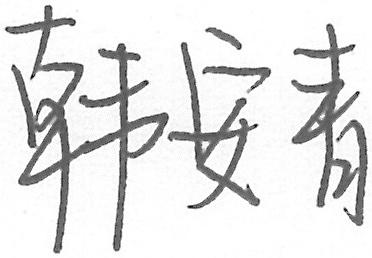 韩安青